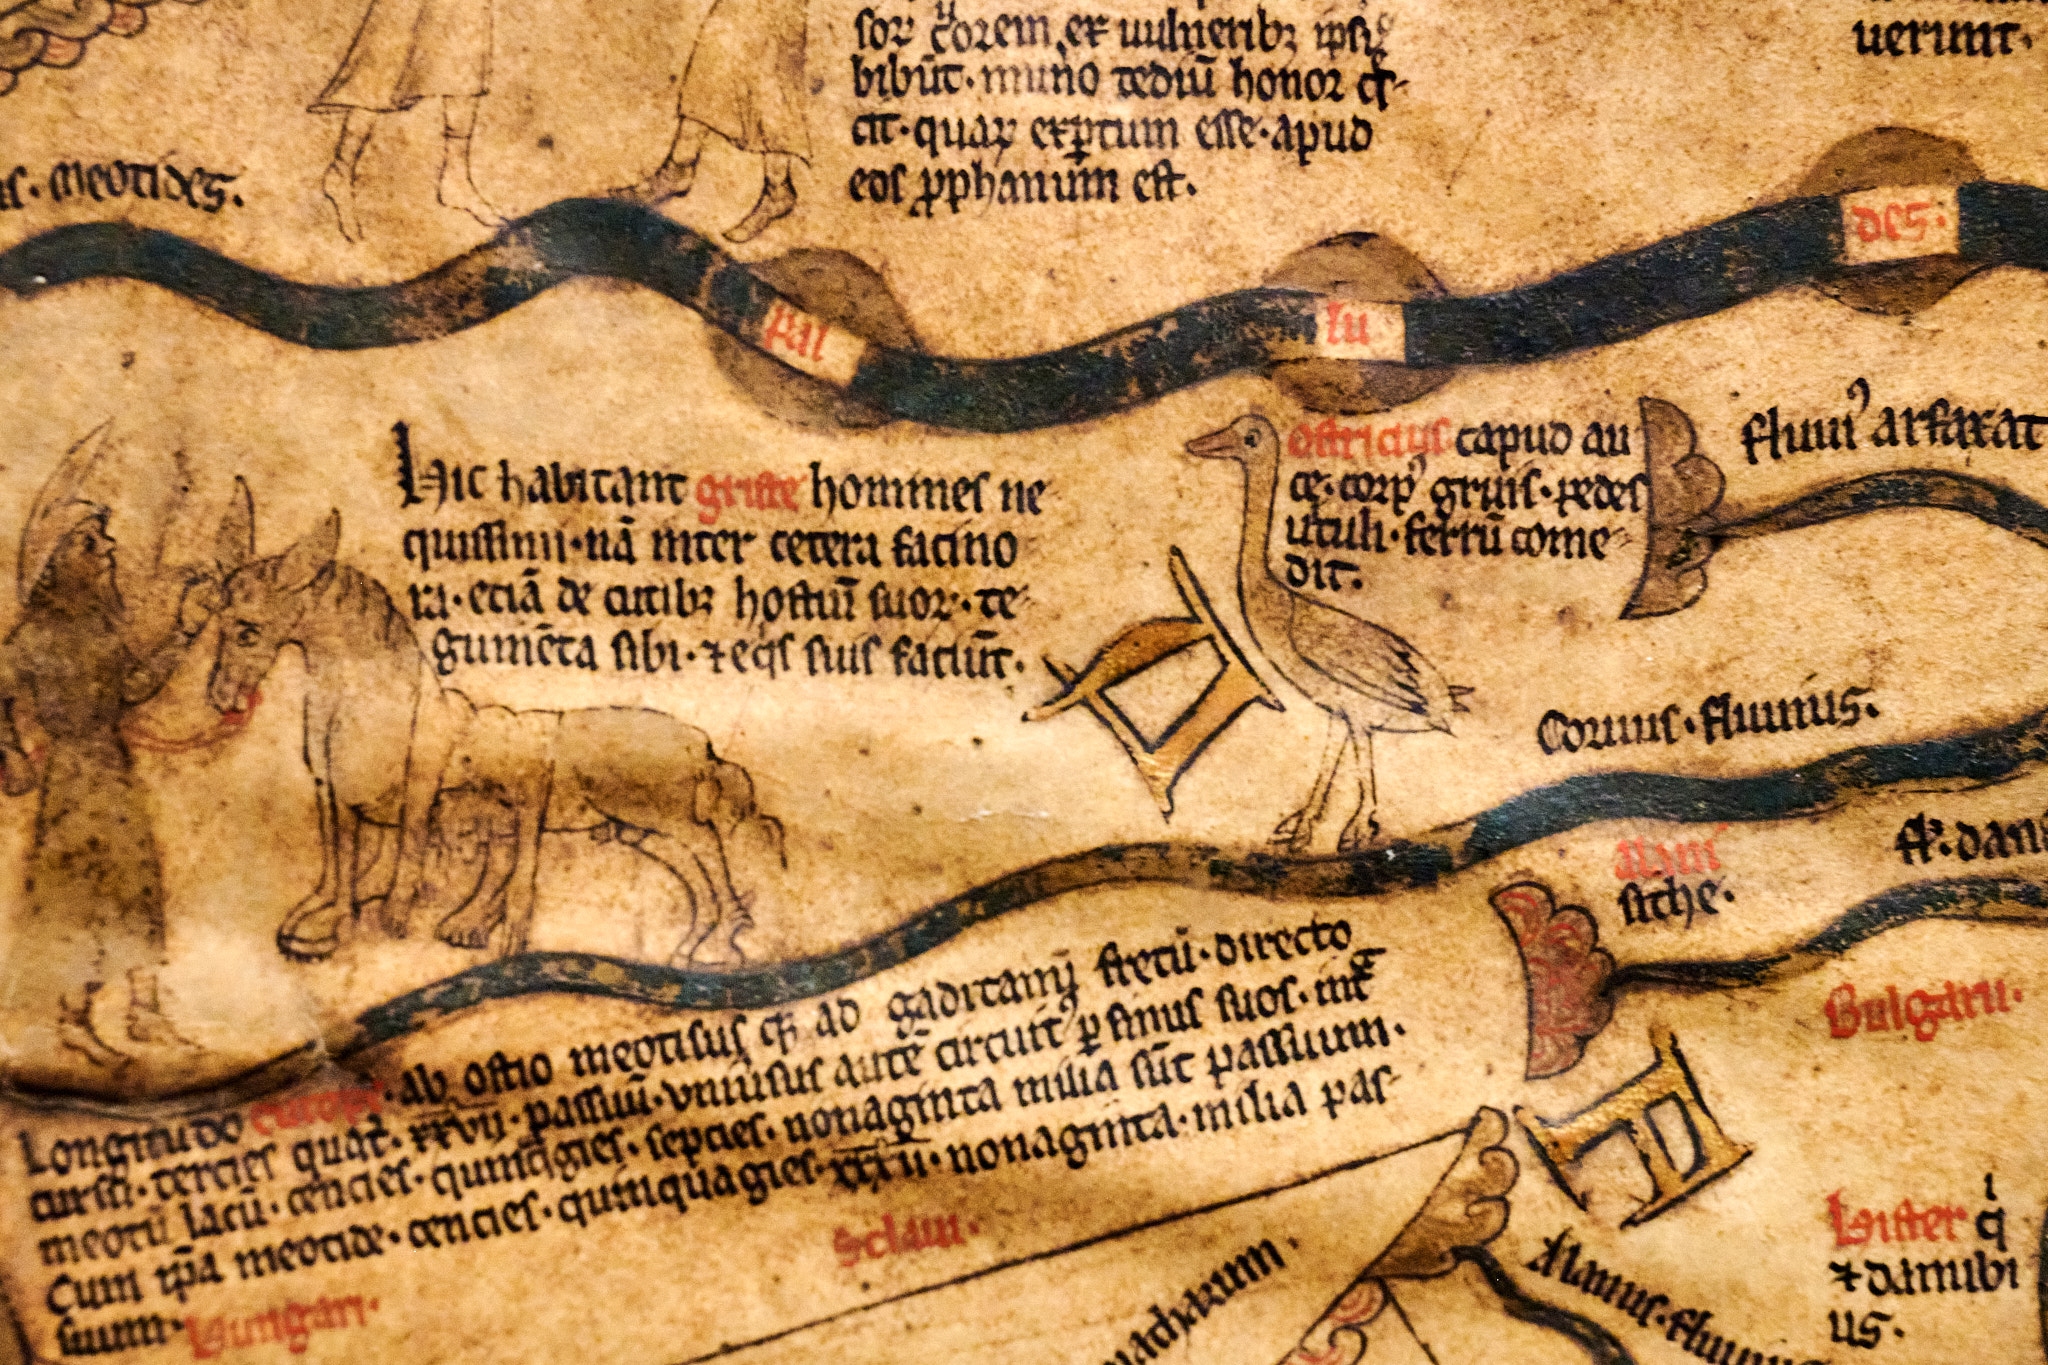 sor corem et uulneribꝫ ipsiꝫ
bibūt· muno tediū honor
cit· quaꝝ exptum esse· apud
eos ꝓphanum est.
uerunt·
meotides.
pal
lu
des·
Hic habitant griste homines ne
quissimi· nā inter cetera facino
ra· etiā de cutibꝫ hostiū suoꝝ· te
gumēta sibi· ⁊ eq̄s suis faciūt·
ostricius capud au
ce· corpꝰ gruis· pedes
uituli· ferrū come
dit·
fluuiꝰ arfaxat
Coruus· fluuius·
A
alani
scithe·
fl· dan
Bulgaru·
Longitudo europe· ab ostio meotisus ad gaditanū fretū· directo
cursu· tercies quat· xxvii· passuū· vniuersus autē circuitꝰ ꝑ sinus suos· int
meotū lacū· cencies· quinq̄gies· septies· nonaginta milia sūt passuum·
Cum ip̄a meotide· cencies· quinquagies· nonaginta· milia pas
suum·
Hungari·
Sclaui·
R
Alanus· fluuius
Hister q̇
⁊ danubi
us·